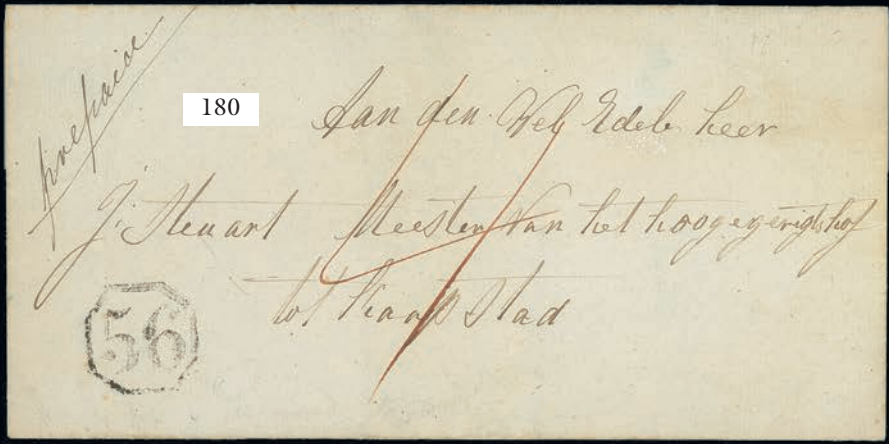 prepaid
180
Aan den Wel Edele heer
J: Steuart Meester Van het hoogegerigtshof
tot Kaapstad
56